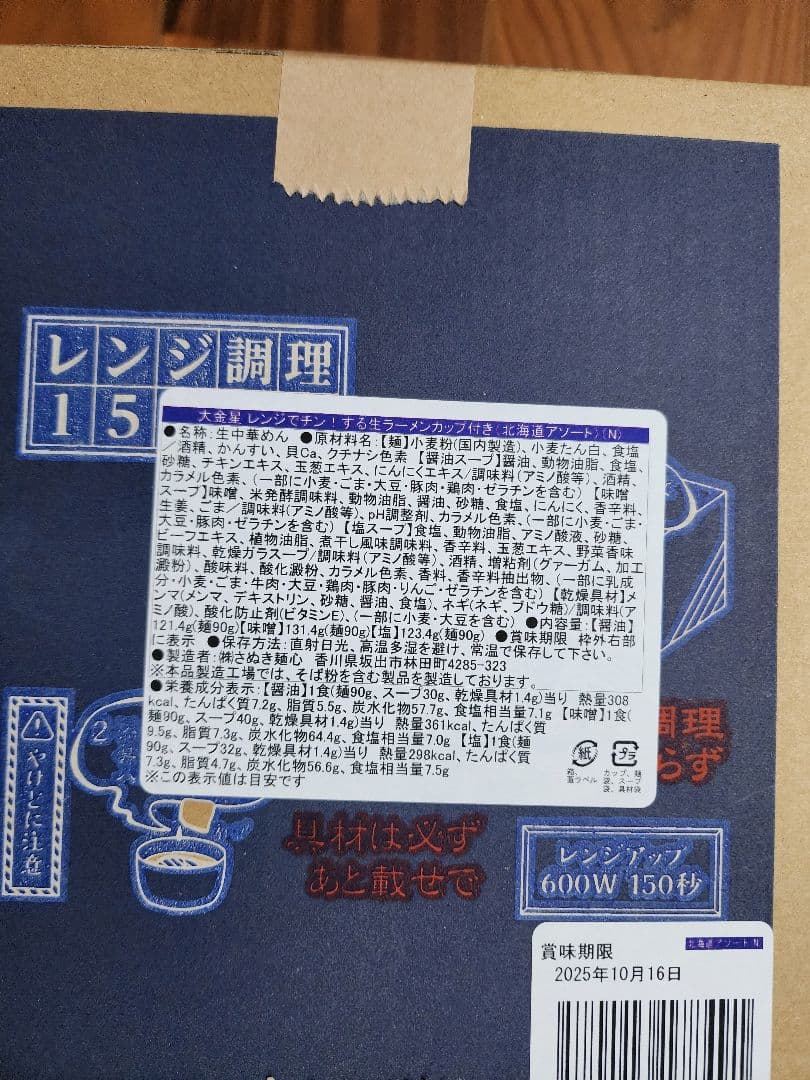 レンジ調理
15
大金星 レンジでチン！する生ラーメンカップ付き（北海道アソート）（N）
●名称：生中華めん ●原材料名：【麺】小麦粉（国内製造）、小麦たん白、食塩
／酒精、かんすい、貝Ca、クチナシ色素 【醤油スープ】醤油、動物油脂、食塩、
砂糖、チキンエキス、玉葱エキス、にんにくエキス／調味料（アミノ酸等）、酒精、
カラメル色素、（一部に小麦・ごま・大豆・豚肉・鶏肉・ゼラチンを含む） 【味噌
スープ】味噌、米発酵調味料、動物油脂、醤油、砂糖、食塩、にんにく、香辛料、
生姜、ごま／調味料（アミノ酸等）、pH調整剤、カラメル色素、（一部に小麦・ごま・
大豆・豚肉・ゼラチンを含む） 【塩スープ】食塩、動物油脂、アミノ酸液、砂糖、
ビーフエキス、植物油脂、煮干し風味調味料、香辛料、玉葱エキス、野菜香味
調味料、乾燥ガラスープ／調味料（アミノ酸等）、酒精、増粘剤（グァーガム、加工
澱粉）、酸味料、酸化澱粉、カラメル色素、香料、香辛料抽出物、（一部に乳成
分・小麦・ごま・牛肉・大豆・鶏肉・豚肉・りんご・ゼラチンを含む） 【乾燥具材】メ
ンマ（メンマ、デキストリン、砂糖、醤油、食塩）、ネギ（ネギ、ブドウ糖）／調味料（ア
ミノ酸）、酸化防止剤（ビタミンE）、（一部に小麦・大豆を含む） ●内容量：【醤油】
121.4g（麺90g）【味噌】131.4g（麺90g）【塩】123.4g（麺90g） ●賞味期限 枠外右部
に表示 ●保存方法：直射日光、高温多湿を避け、常温で保存して下さい。
●製造者：㈱さぬき麺心 香川県坂出市林田町4285-323
※本品製造工場では、そば粉を含む製品を製造しております。
●栄養成分表示：【醤油】1食（麺90g、スープ30g、乾燥具材1.4g）当り 熱量308
kcal、たんぱく質7.2g、脂質5.5g、炭水化物57.7g、食塩相当量7.1g 【味噌】1食（
麺90g、スープ40g、乾燥具材1.4g）当り 熱量361kcal、たんぱく質
9.5g、脂質7.3g、炭水化物64.4g、食塩相当量7.0g 【塩】1食（麺
90g、スープ32g、乾燥具材1.4g）当り 熱量298kcal、たんぱく質
7.3g、脂質4.7g、炭水化物56.6g、食塩相当量7.5g
※この表示値は目安です
紙
プラ
箱、
直ラベル
カップ、麺
袋、スープ
袋、具材袋
調理
らず
2
やけどに注意
具材は必ず
あと載せで
レンジアップ
600W 150秒
北海道アソート N
賞味期限
2025年10月16日